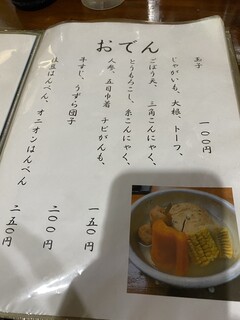 おでん
玉子 一〇〇円
じゃがいも、大根、トーフ、
ごぼう天、三角こんにゃく、
とうもろこし、糸こんにゃく、
人参、五目巾着、チビがんも、 一五〇円
牛すじ、うずら団子 二〇〇円
はんぺん、オニオンはんぺん 二五〇円